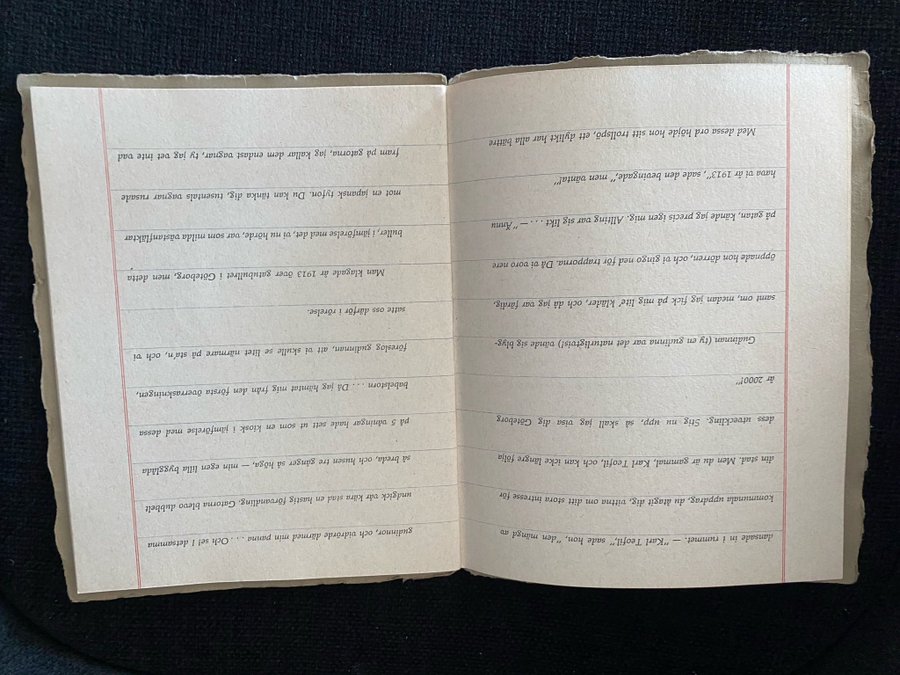 dansade in i rummet. — "Karl Teofil," sade hon, "den mängd av
kommunala uppdrag, du åtagit, vittna om ditt stora intresse för
din stad. Men du är gammal, Karl Teofil, och kan icke längre följa
dess utveckling. Stig nu upp, så skall jag visa dig Göteborg
år 2000!"
Gudinnan (ty en gudinna var det naturligtvis!) vände sig blyg-
samt om, medan jag fick på mig lite' kläder, och då jag var färdig,
öppnade hon dörren, och vi gingo ned för trapporna. Då vi voro nere
på gatan, kände jag precis igen mig. Allting var sig likt . . . — "Ännu
hava vi år 1913", sade den bevingade, "men vänta!"
Med dessa ord höjde hon sitt trollspö, ett dylikt har alla bättre
gudinnor, och vidrörde därmed min panna . . . . Och se! I detsamma
undgick vår kära stad en hastig förvandling. Gatorna blevo dubbelt
så breda, och husen tre gånger så höga, — min egen lilla bygglåda
på 5 våningar hade sett ut som en kiosk i jämförelse med dessa
babelstorn . . . . Då jag hämtat mig från den första överraskningen,
föreslog gudinnan, att vi skulle se litet närmare på sta'n, och vi
satte oss därför i rörelse.
Man klagade år 1913 över gatubullret i Göteborg, men detta
buller, i jämförelse med det, vi nu hörde, var som milda västanfläktar
mot en japansk tyfon. Du kan tänka dig, tusentals vagnar rusade
fram på gatorna, jag kallar dem endast vagnar, ty jag vet inte vad